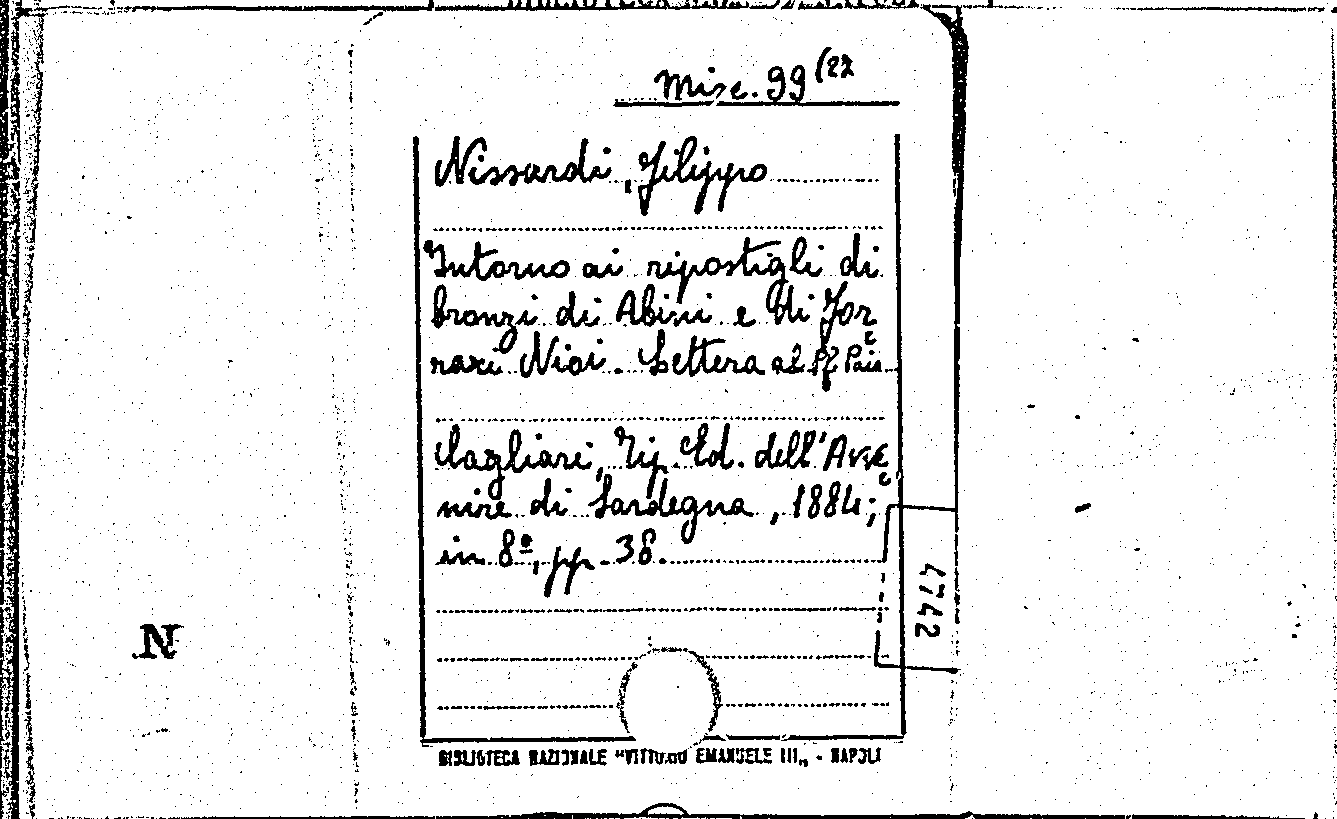 Misc. 99 (22
Nissardi, Filippo
Intorno ai ripostigli di
bronzi di Abini e di For
raxi Nioi. Lettera al Pf. Pais
Cagliari, Tip. Ed. dell'Avve
nire di Sardegna, 1884;
in 8º, pp. 38.
4742
N
BIBLIOTECA NAZIONALE "VITTORIO EMANUELE III„ - NAPOLI